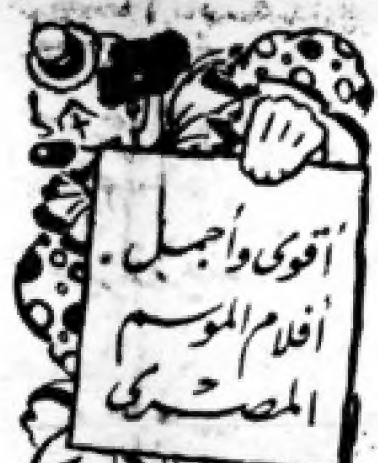 أقوى وأجمل
أفلام الموسم
المصرى